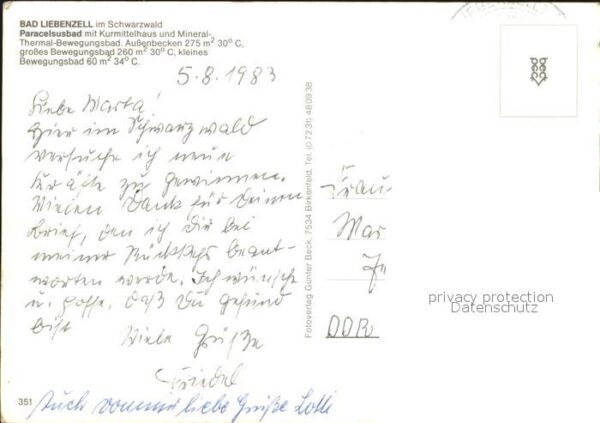 BAD LIEBENZELL im Schwarzwald
Paracelsusbad mit Kurmittelhaus und Mineral-
Thermal-Bewegungsbad. Außenbecken 275 m² 30° C,
großes Bewegungsbad 260 m² 30° C, kleines
Bewegungsbad 60 m² 34° C.
5.8.1983
Liebe Marta!
Hier im Schwarzwald
versuche ich neue
Kräfte zu gewinnen.
Vielen Dank für Deinen
Brief, den ich Dir bei
meiner Rückkehr beant-
worten werde. Ich wünsche
u. hoffe, daß Du gesund
bist
Viele Grüße
Friedel
Auch von mir liebe Grüße Lotti
351
Fotoverlag Günter Beck, 7534 Birkenfeld, Tel. (0 72 31) 48 09 38
Frau
Mar
DDR
privacy protection
Datenschutz